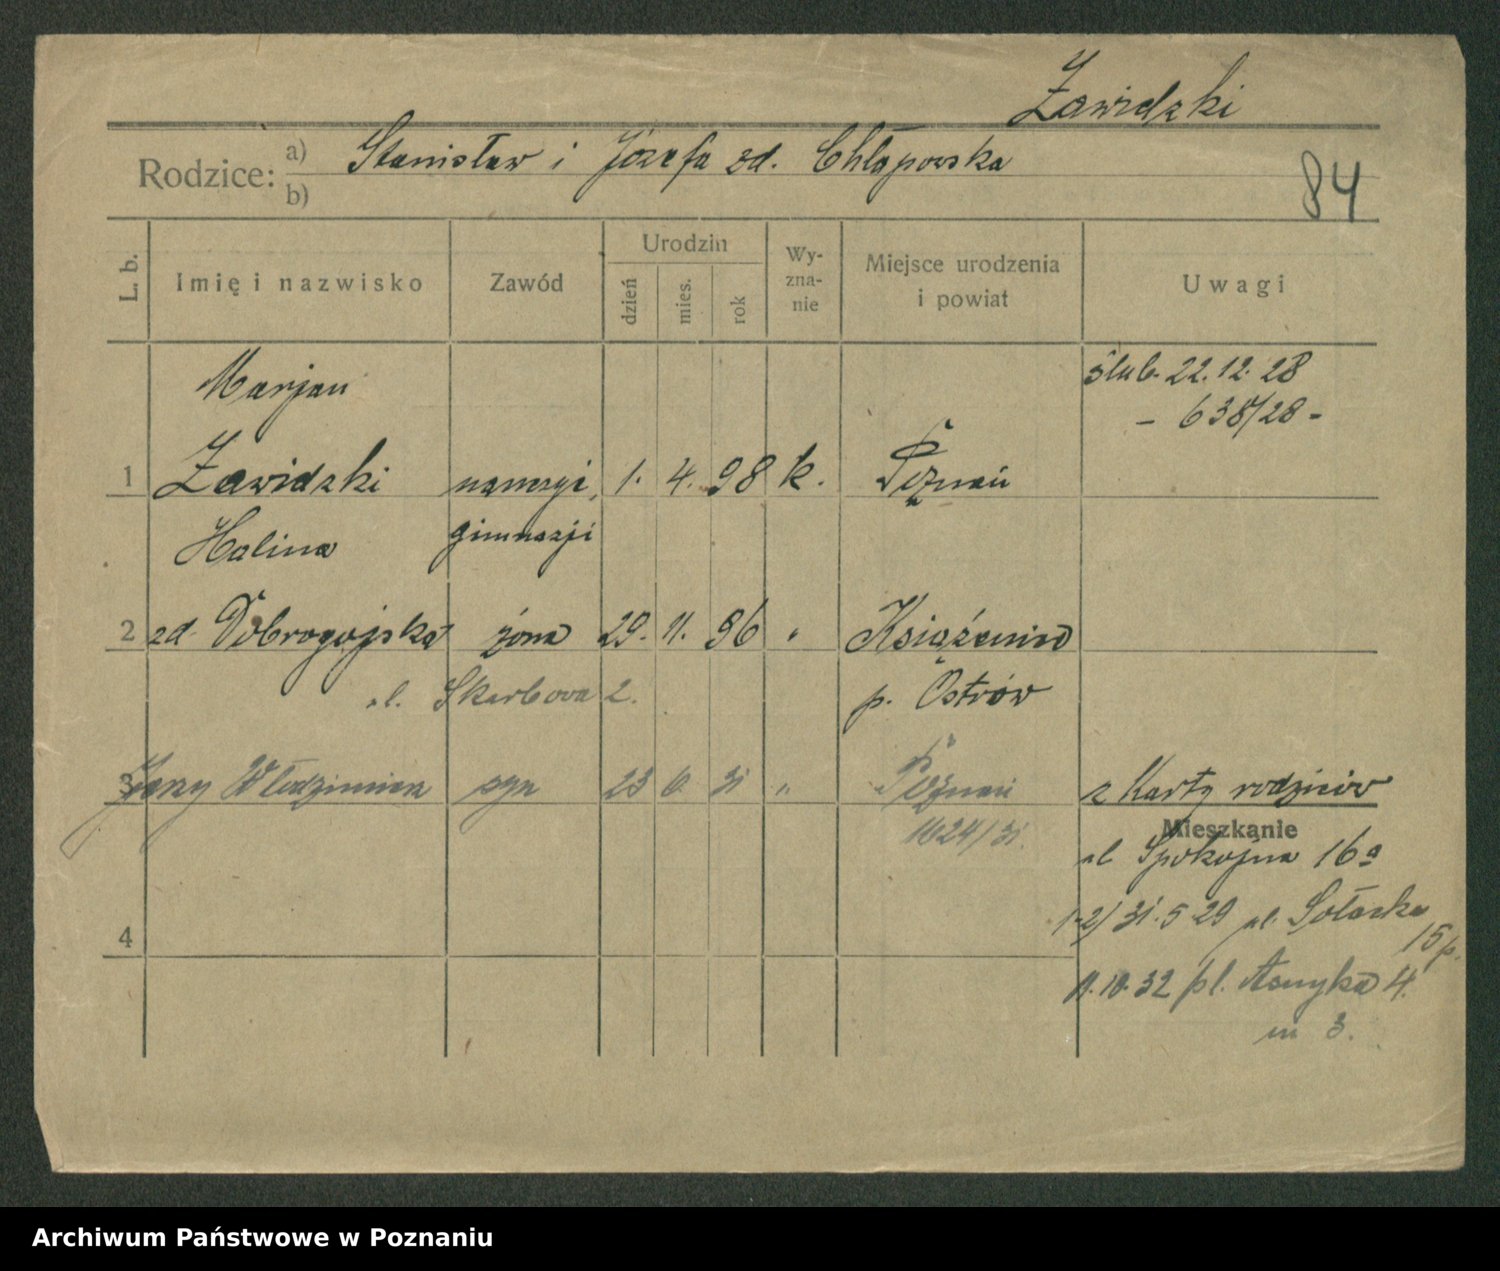 Zawidzki
Rodzice: a) Stanisław i Józefa zd. Chłapowska
b)
84
L. b. Imię i nazwisko Zawód Urodzin dzień mies. rok Wy-zna-nie Miejsce urodzenia i powiat Uwagi
Marjan
ślub. 22. 12. 28
- 638/28 -
1 Zawidzki 1. 4. 98 k. Poznań
Halina gimnazji
2 zd. Dobrogojska żona 29. 11. 96 " Książenice
ul. Skarbowa 2. p. Ostrów
3 Jerzy Włodzimierz syn 23 6 31 " Poznań z Karty rodziców
1624/31. Mieszkanie
ul Spokojna 16a
4 1-2) 31. 5 29 ul. Sołacka
15 p.
11. 10. 32 pl. Asnyka 4.
m 3.
Archiwum Państwowe w Poznaniu